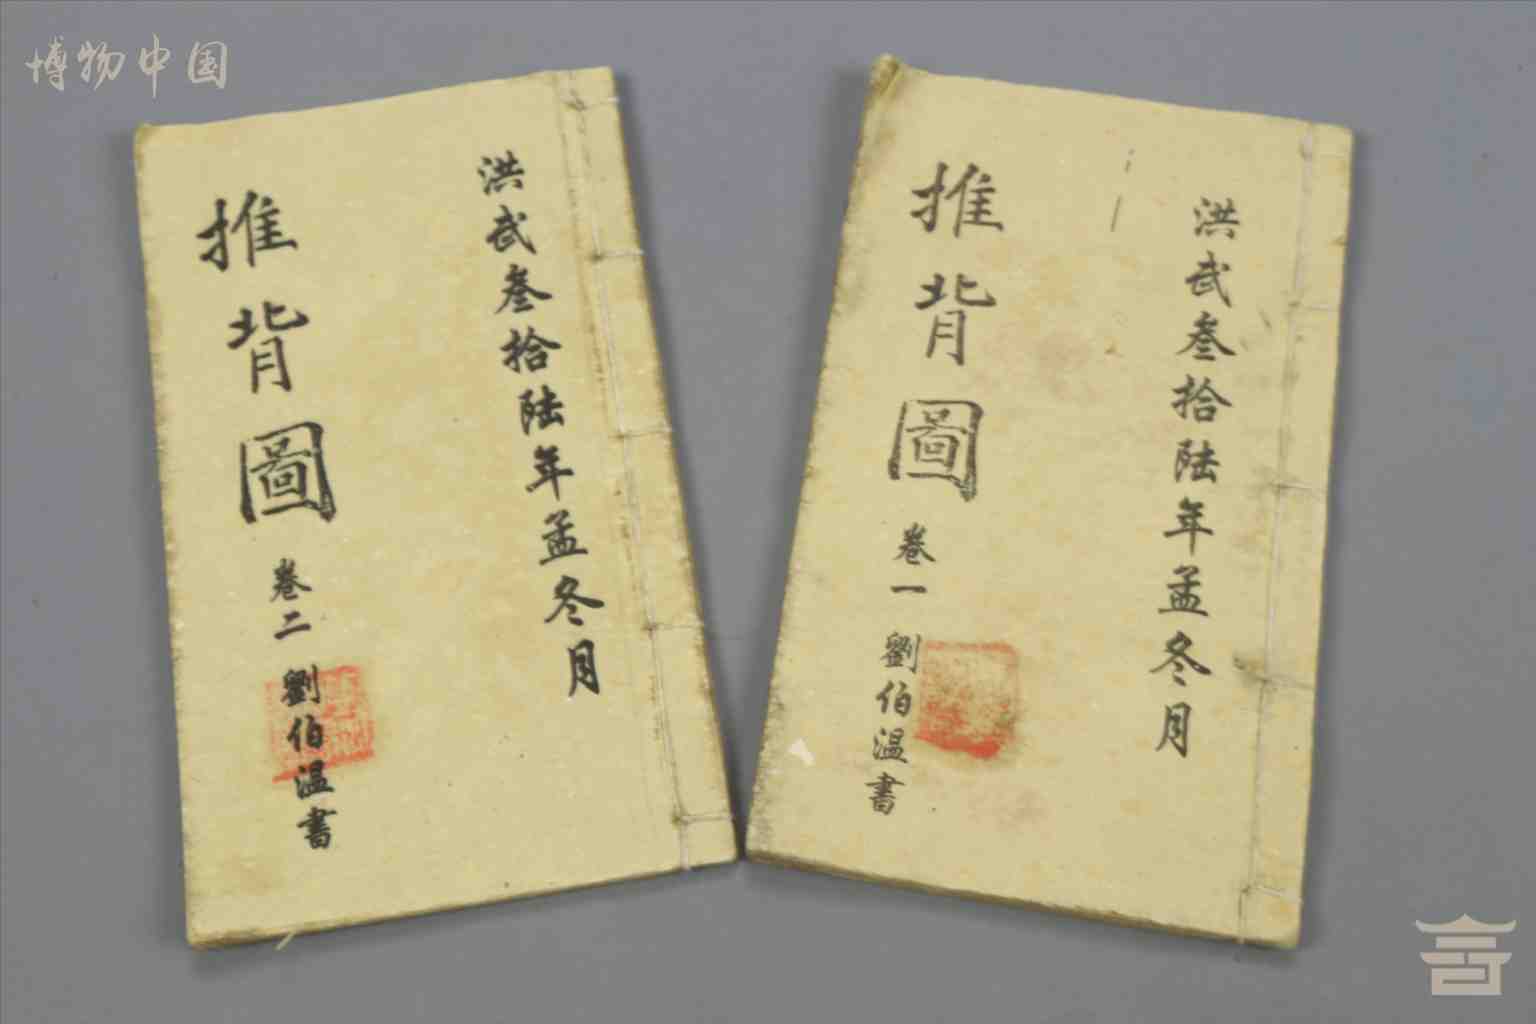 博物中国
洪武叁拾陆年孟冬月
推背圖 卷一 劉伯温書
洪武叁拾陆年孟冬月
推背圖 卷二 劉伯温書